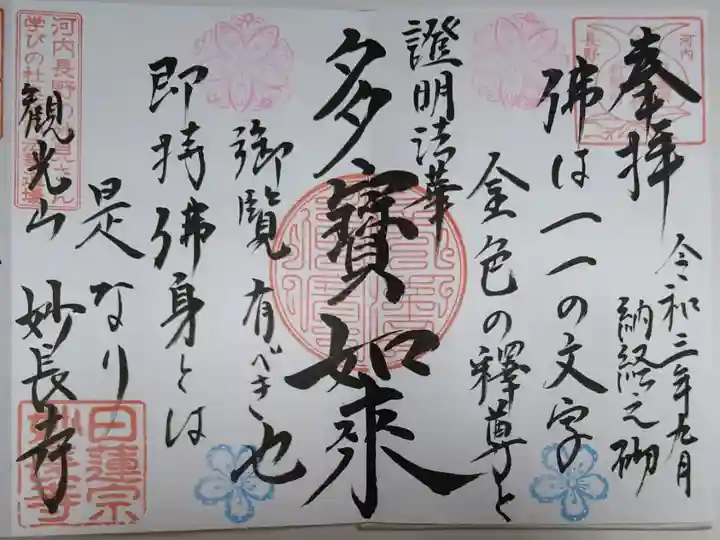 奉拝
令和三年九月
納経之砌
佛は一一の文字
金色の釋尊と
證明法華
多寳如来
御覧有べき也
即持佛身とは
是なり
観光山 妙長寺
日蓮宗
妙長寺
河内
長野
河内長野の
学びの杜